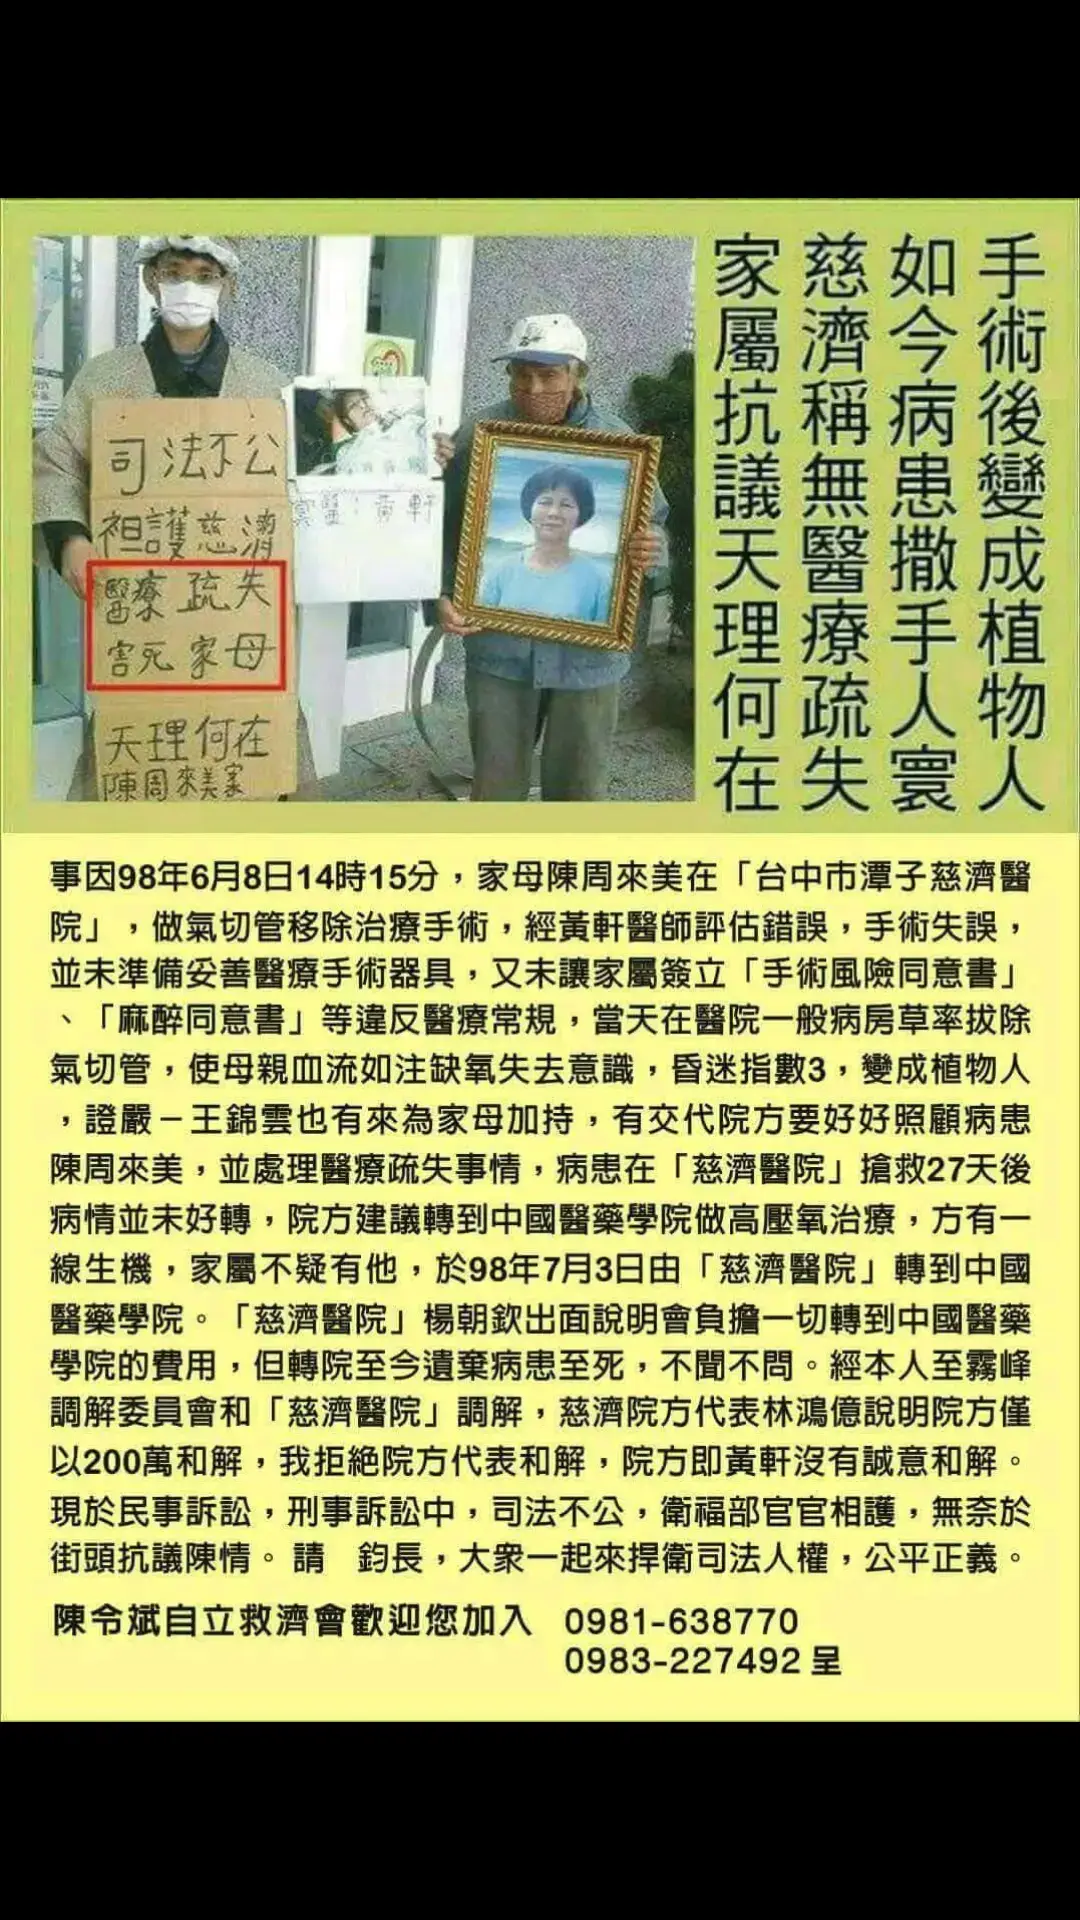 手術後變成植物人
如今病患撒手人寰
慈濟稱無醫療疏失
家屬抗議天理何在
司法不公
袒護慈濟
醫療疏失
害死家母
天理何在
陳周來美家
黃軒
事因98年6月8日14時15分，家母陳周來美在「台中市潭子慈濟醫
院」，做氣切管移除治療手術，經黃軒醫師評估錯誤，手術失誤，
並未準備妥善醫療手術器具，又未讓家屬簽立「手術風險同意書」
、「麻醉同意書」等違反醫療常規，當天在醫院一般病房草率拔除
氣切管，使母親血流如注缺氧失去意識，昏迷指數3，變成植物人
，證嚴－王錦雲也有來為家母加持，有交代院方要好好照顧病患
陳周來美，並處理醫療疏失事情，病患在「慈濟醫院」搶救27天後
病情並未好轉，院方建議轉到中國醫藥學院做高壓氧治療，方有一
線生機，家屬不疑有他，於98年7月3日由「慈濟醫院」轉到中國
醫藥學院。「慈濟醫院」楊朝欽出面說明會負擔一切轉到中國醫藥
學院的費用，但轉院至今遺棄病患至死，不聞不問。經本人至霧峰
調解委員會和「慈濟醫院」調解，慈濟院方代表林鴻億說明院方僅
以200萬和解，我拒絕院方代表和解，院方即黃軒沒有誠意和解。
現於民事訴訟，刑事訴訟中，司法不公，衛福部官官相護，無奈於
街頭抗議陳情。請　鈞長，大眾一起來捍衛司法人權，公平正義。
陳令斌自立救濟會歡迎您加入 0981-638770
0983-227492 呈